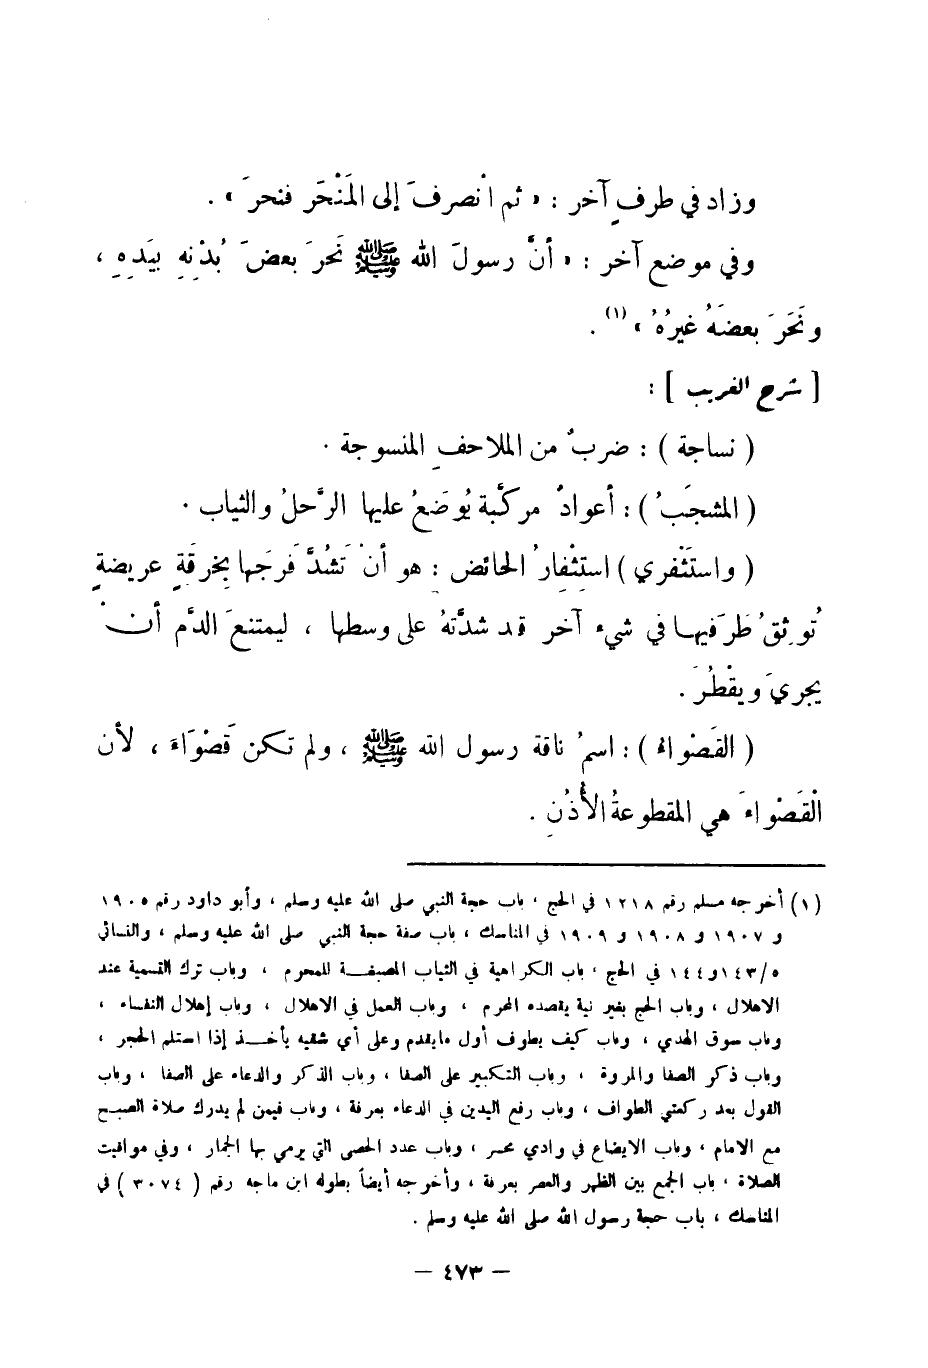 وزاد في طرفٍ آخر : « ثم انْصرفَ إلى المَنْحَر فنحرَ » .
وفي موضع آخر : « أنَّ رسولَ الله ﷺ نَحرَ بعضَ بُدْنِهِ بيَدهِ ،
ونَحَرَ بعضَهُ غيرُهُ » (١) .
[ شرح الغريب ] :
( نساجة ) : ضربٌ من الملاحفِ المنسوجة .
( المشجَبُ ) : أعوادٌ مركَّبة يُوضَعُ عليها الرَّحلُ والثياب .
( واستَثْفري ) استِثْفِارُ الحائض : هو أنْ تَشُدَّ فَرجَها بخرقَةٍ عريضةٍ
تُوثِقُ طَرَفيها في شيء آخر قد شدَّتهُ على وسطها ، ليمتنعَ الدَّم أنْ
يجريَ ويقْطُرَ .
( القَصْواءُ ) : اسمُ ناقة رسول الله ﷺ ، ولم تكن قَصْوَاءَ ، لأن
الْقَصْواءَ هي المقطوعةُ الأُذُنِ .
(١) أخرجه مسلم رقم ١٢١٨ في الحج ، باب حجة النبي صلى الله عليه وسلم ، وأبو داود رقم ١٩٠٥
و ١٩٠٧ و ١٩٠٨ و ١٩٠٩ في المناسك ، باب صفة حجة النبي صلى الله عليه وسلم ، والنسائي
٥/١٤٣و١٤٤ في الحج ، باب الكراهية في الثياب المصبغة للمحرم ، وباب ترك التسمية عند
الاهلال ، وباب الحج بغير نية يقصده المحرم ، وباب العمل في الاهلال ، وباب إهلال النفساء ،
وباب سوق الهدي ، وباب كيف يطوف أول مايقدم وعلى أي شقيه يأخذ إذا استلم الحجر ،
وباب ذكر الصفا والمروة ، وباب التكبير على الصفا ، وباب الذكر والدعاء على الصفا ، وباب
القول بعد ركعتي الطواف ، وباب رفع اليدين في الدعاء بعرفة ، وباب فيمن لم يدرك صلاة الصبح
مع الامام ، وباب الايضاع في وادي محسر ، وباب عدد الحصى التي يرمي بها الجمار ، وفي مواقيت
الصلاة ، باب الجمع بين الظهر والعصر بعرفة ، وأخرجه أيضاً بطوله ابن ماجه رقم ( ٣٠٧٤ ) في
المناسك ، باب حجة رسول الله صلى الله عليه وسلم .
— ٤٧٣ —